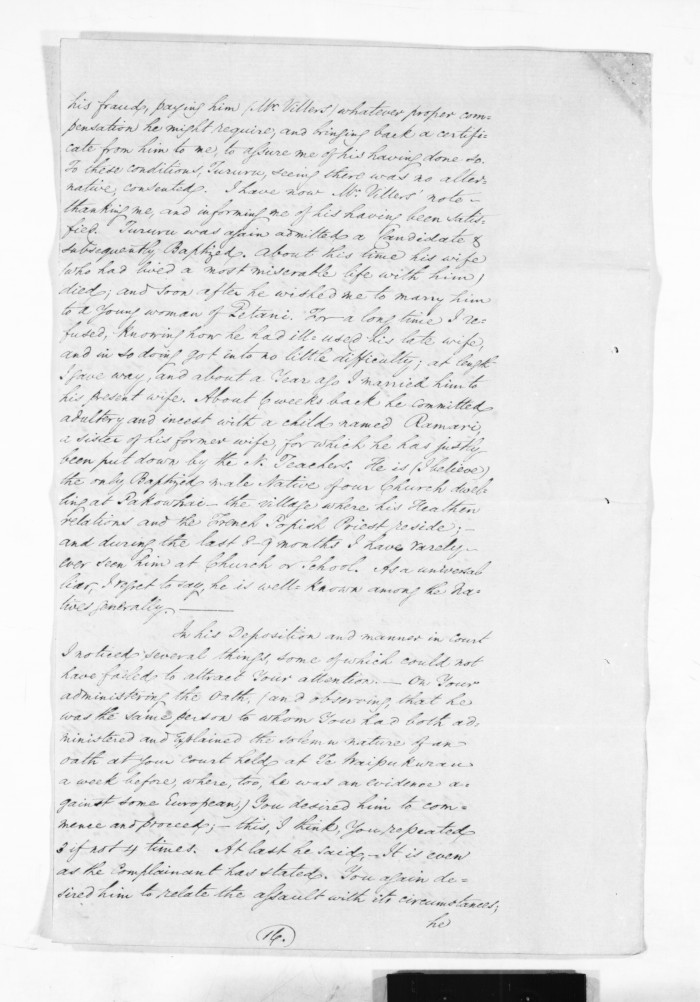 his fraud, paying him (Mr. Villers) whatever proper com=
pensation he might require, and bringing back a certifi=
cate from him to me, to assure me of his having done so.
To these conditions, Tururu, seeing there was no alter=
native, consented. I have now Mr. Villers' note –
thanking me, and informing me of his having been satis=
fied. Tururu was again admitted a Candidate &
subsequently Baptized. About this time his wife
(who had lived a most miserable life with him)
died; and soon after he wished me to marry him
to a young woman of Petani. For a long time I re=
fused, knowing how he had ill=used his late wife,
and in so doing got into no little difficulty; at length
I gave way, and about a Year ago I married him to
his present wife. About 6 weeks back he committed
adultery and incest with a child named Ramari,
a sister of his former wife, for which he has justly
been put down by the N. Teachers. He is (I believe)
the only Baptized male Native of our Church dwel=
ling at Pakowhai – the village where his Heathen
relations and the French Popish Priest reside; –
and during the last 8–9 months I have rarely –
ever seen him at Church or School. As a universal
liar, I regret to say, he is well=known among the Na=
tives generally. ——
In his Deposition and manner in Court
I noticed several things, some of which could not
have failed to attract Your attention. – On Your
administering the Oath, (and observing, that he
was the same person to whom You had both ad=
ministered and explained the solemn nature of an
oath at your Court held at Te Waipukurau
a week before, where, too, he was an evidence a=
gainst some European,) You desired him to com=
mence and proceed; – this, I think, You repeated
3 if not 4 times. At last he said, – It is even
as the Complainant has stated. You again de=
sired him to relate the assault with its circumstances;
he
(16.)